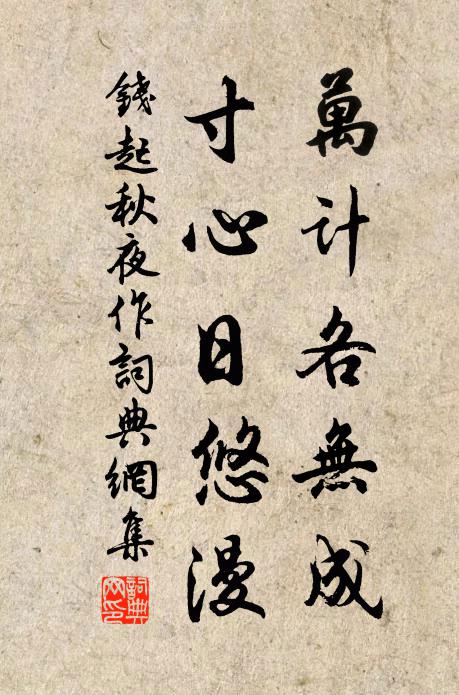 萬計各無成
寸心日悠漫
錢起秋夜作詞典網集
詞典網印